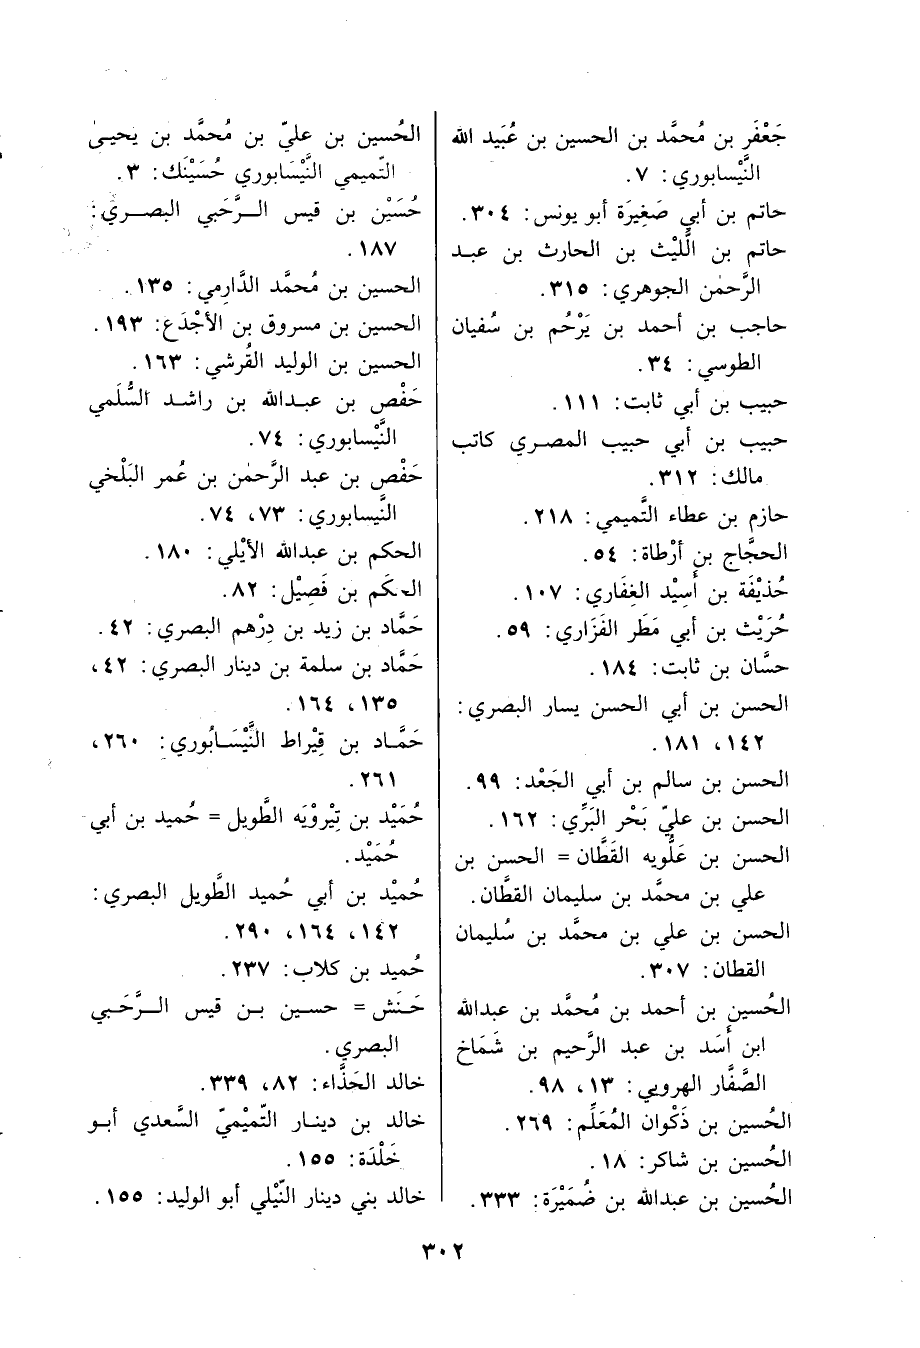 جَعْفَر بن مُحمَّد بن الحسين بن عُبَيد الله
النَّيْسابوري: ٧.
حاتم بن أبي صَغِيرَة أبو يونس: ٣٠٤.
حاتم بن اللَّيْث بن الحارث بن عبد
الرَّحمٰن الجوهري: ٣١٥.
حاجب بن أحمد بن يَرْحُم بن سُفيان
الطوسي: ٣٤.
حبيب بن أبي ثابت: ١١١.
حبيب بن أبي حبيب المصري كاتب
مالك: ٣١٢.
حازم بن عطاء التَّميمي: ٢١٨.
الحجَّاج بن أرْطاة: ٥٤.
حُذيْفَة بن أَسِيْد الغِفَاري: ١٠٧.
حُرَيْث بن أبي مَطَر الفَزَاري: ٥٩.
حسَّان بن ثابت: ١٨٤.
الحسن بن أبي الحسن يسار البصري:
١٤٢، ١٨١.
الحسن بن سالم بن أبي الجَعْد: ٩٩.
الحسن بن عليّ بَحْر البَرِّي: ١٦٢.
الحسن بن عَلُّويه القَطَّان = الحسن بن
علي بن محمَّد بن سليمان القطَّان.
الحسن بن علي بن محمَّد بن سُليمان
القطان: ٣٠٧.
الحُسين بن أحمد بن مُحمَّد بن عبدالله
ابن أَسَد بن عبد الرَّحيم بن شَمَاخ
الصَّفَّار الهرويي: ١٣، ٩٨.
الحُسين بن ذَكْوان المُعَلِّم: ٢٦٩.
الحُسين بن شاكر: ١٨.
الحُسين بن عبدالله بن ضُمَيْرَة: ٣٣٣.
الحُسين بن عليّ بن مُحمَّد بن يحيىٰ
التّميمي النَّيْسَابوري حُسَيْنَك: ٣.
حُسَيْن بن قيس الـرَّحَبي البصـريّ:
١٨٧.
الحسين بن مُحمَّد الدَّارمي: ١٣٥.
الحسين بن مسروق بن الأجْدَع: ١٩٣.
الحسين بن الوليد القُرشي: ١٦٣.
حَفْص بن عبـدالله بن راشـد السُّلَمي
النَّيْسابوري: ٧٤.
حَفْص بن عبد الرَّحمٰن بن عُمر البَلْخي
النَّيسابوري: ٧٣، ٧٤.
الحكم بن عبدالله الأيْلي: ١٨٠.
الحكَم بن فَصِيْل: ٨٢.
حَمَّاد بن زيد بن دِرْهم البصري: ٤٢.
حَمَّاد بن سلمة بن دينار البصري: ٤٢،
١٣٥، ١٦٤.
حَمَّـاد بن قِيْراط النَّيْسَـابُوري: ٢٦٠،
٢٦١.
حُمَيْد بن تِيْرُوْيَه الطَّويل = حُميد بن أبي
حُمَيْد.
حُميْد بن أبي حُميد الطَّويل البصري:
١٤٢، ١٦٤، ٢٩٠.
حُميد بن كلاب: ٢٣٧.
حَنَـش = حسـين بـن قيس الـرَّحَـبي
البصري.
خالد الحَذَّاء: ٨٢، ٣٣٩.
خالد بن دينـار التّميْميّ السَّعدي أبـو
خَلْدَة: ١٥٥.
خالد بني دينار النِّيْلي أبو الوليد: ١٥٥.
٣٠٢